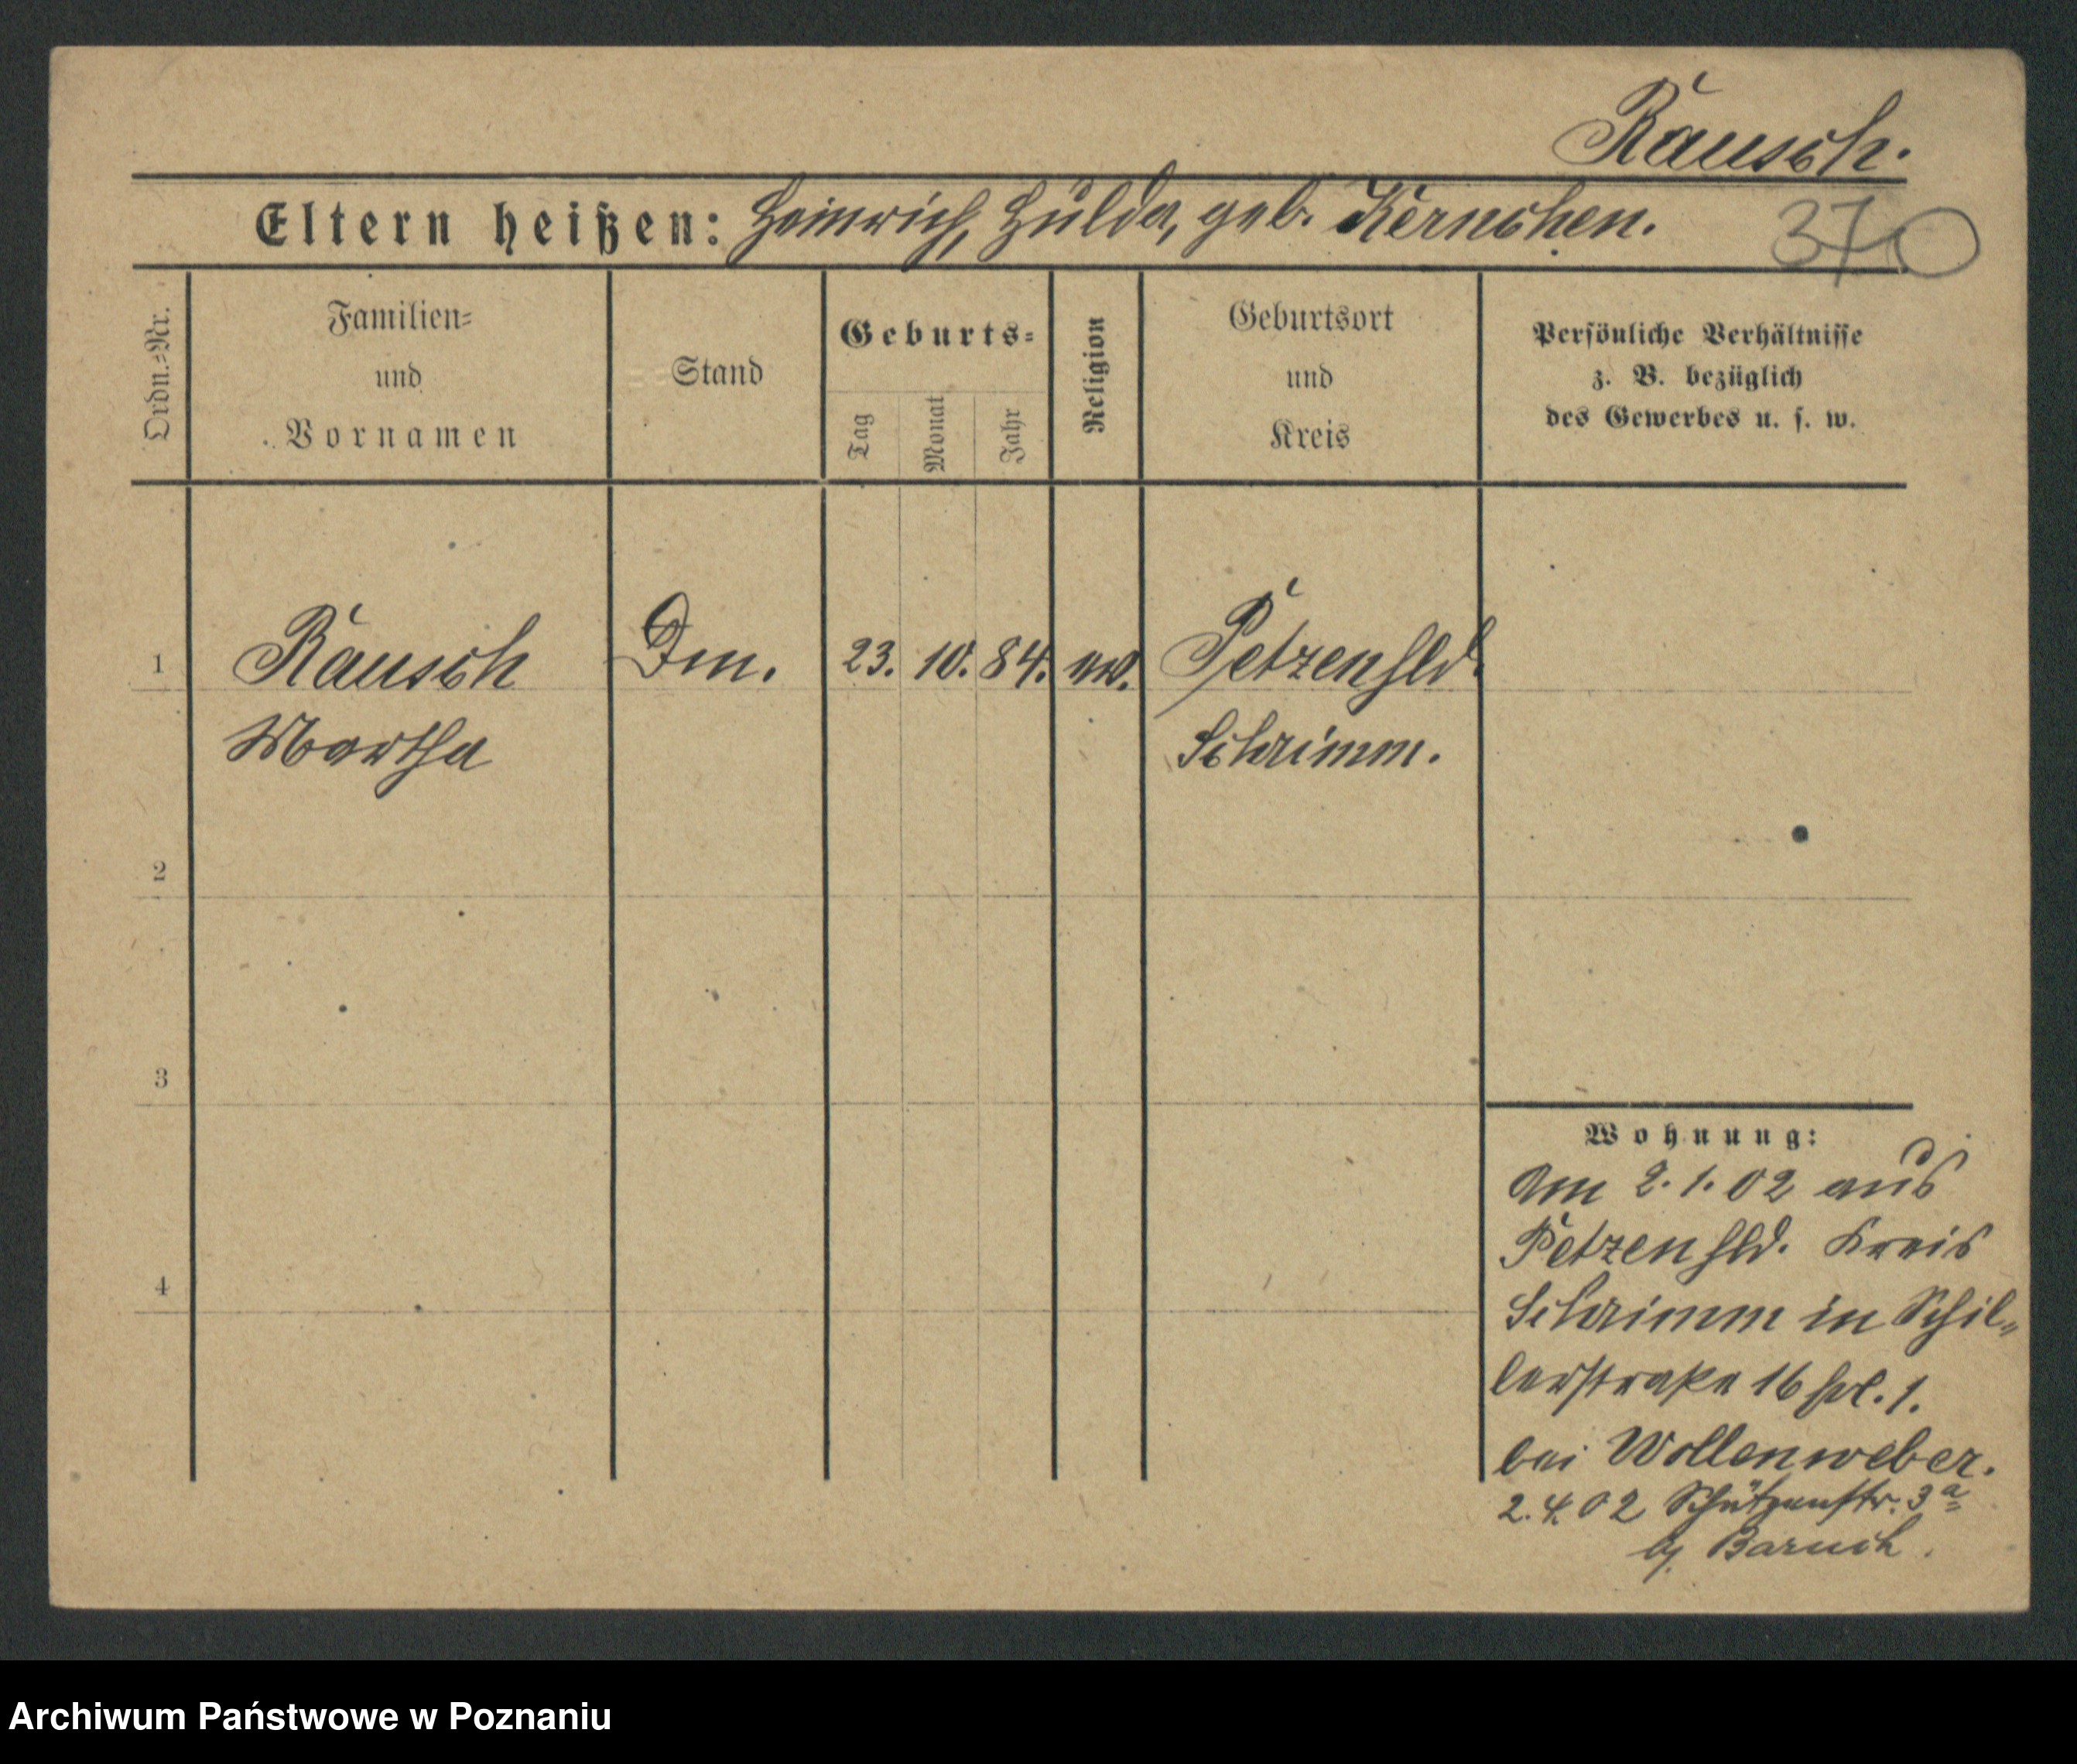 Rausch.
Eltern heißen: Heinrich, Hulda, geb. Kernchen.
370
Ordn.=Nr.
Familien=
und
Vornamen
Stand
Geburts=
Tag
Monat
Jahr
Religion
Geburtsort
und
Kreis
Persönliche Verhältnisse
z. B. bezüglich
des Gewerbes u. s. w.
1 Rausch Dm. 23. 10. 84. ev. Petzenhld.
Martha Schrimm.
2
3
4
Wohnung:
Am 2. 1. 02 aus
Petzenhld. Kreis
Schrimm in Schil„
lerstraße 16 hpl. 1.
bei Wollenweber.
2. 4. 02 Schützenstr. 3a
bj Baruch.
Archiwum Państwowe w Poznaniu